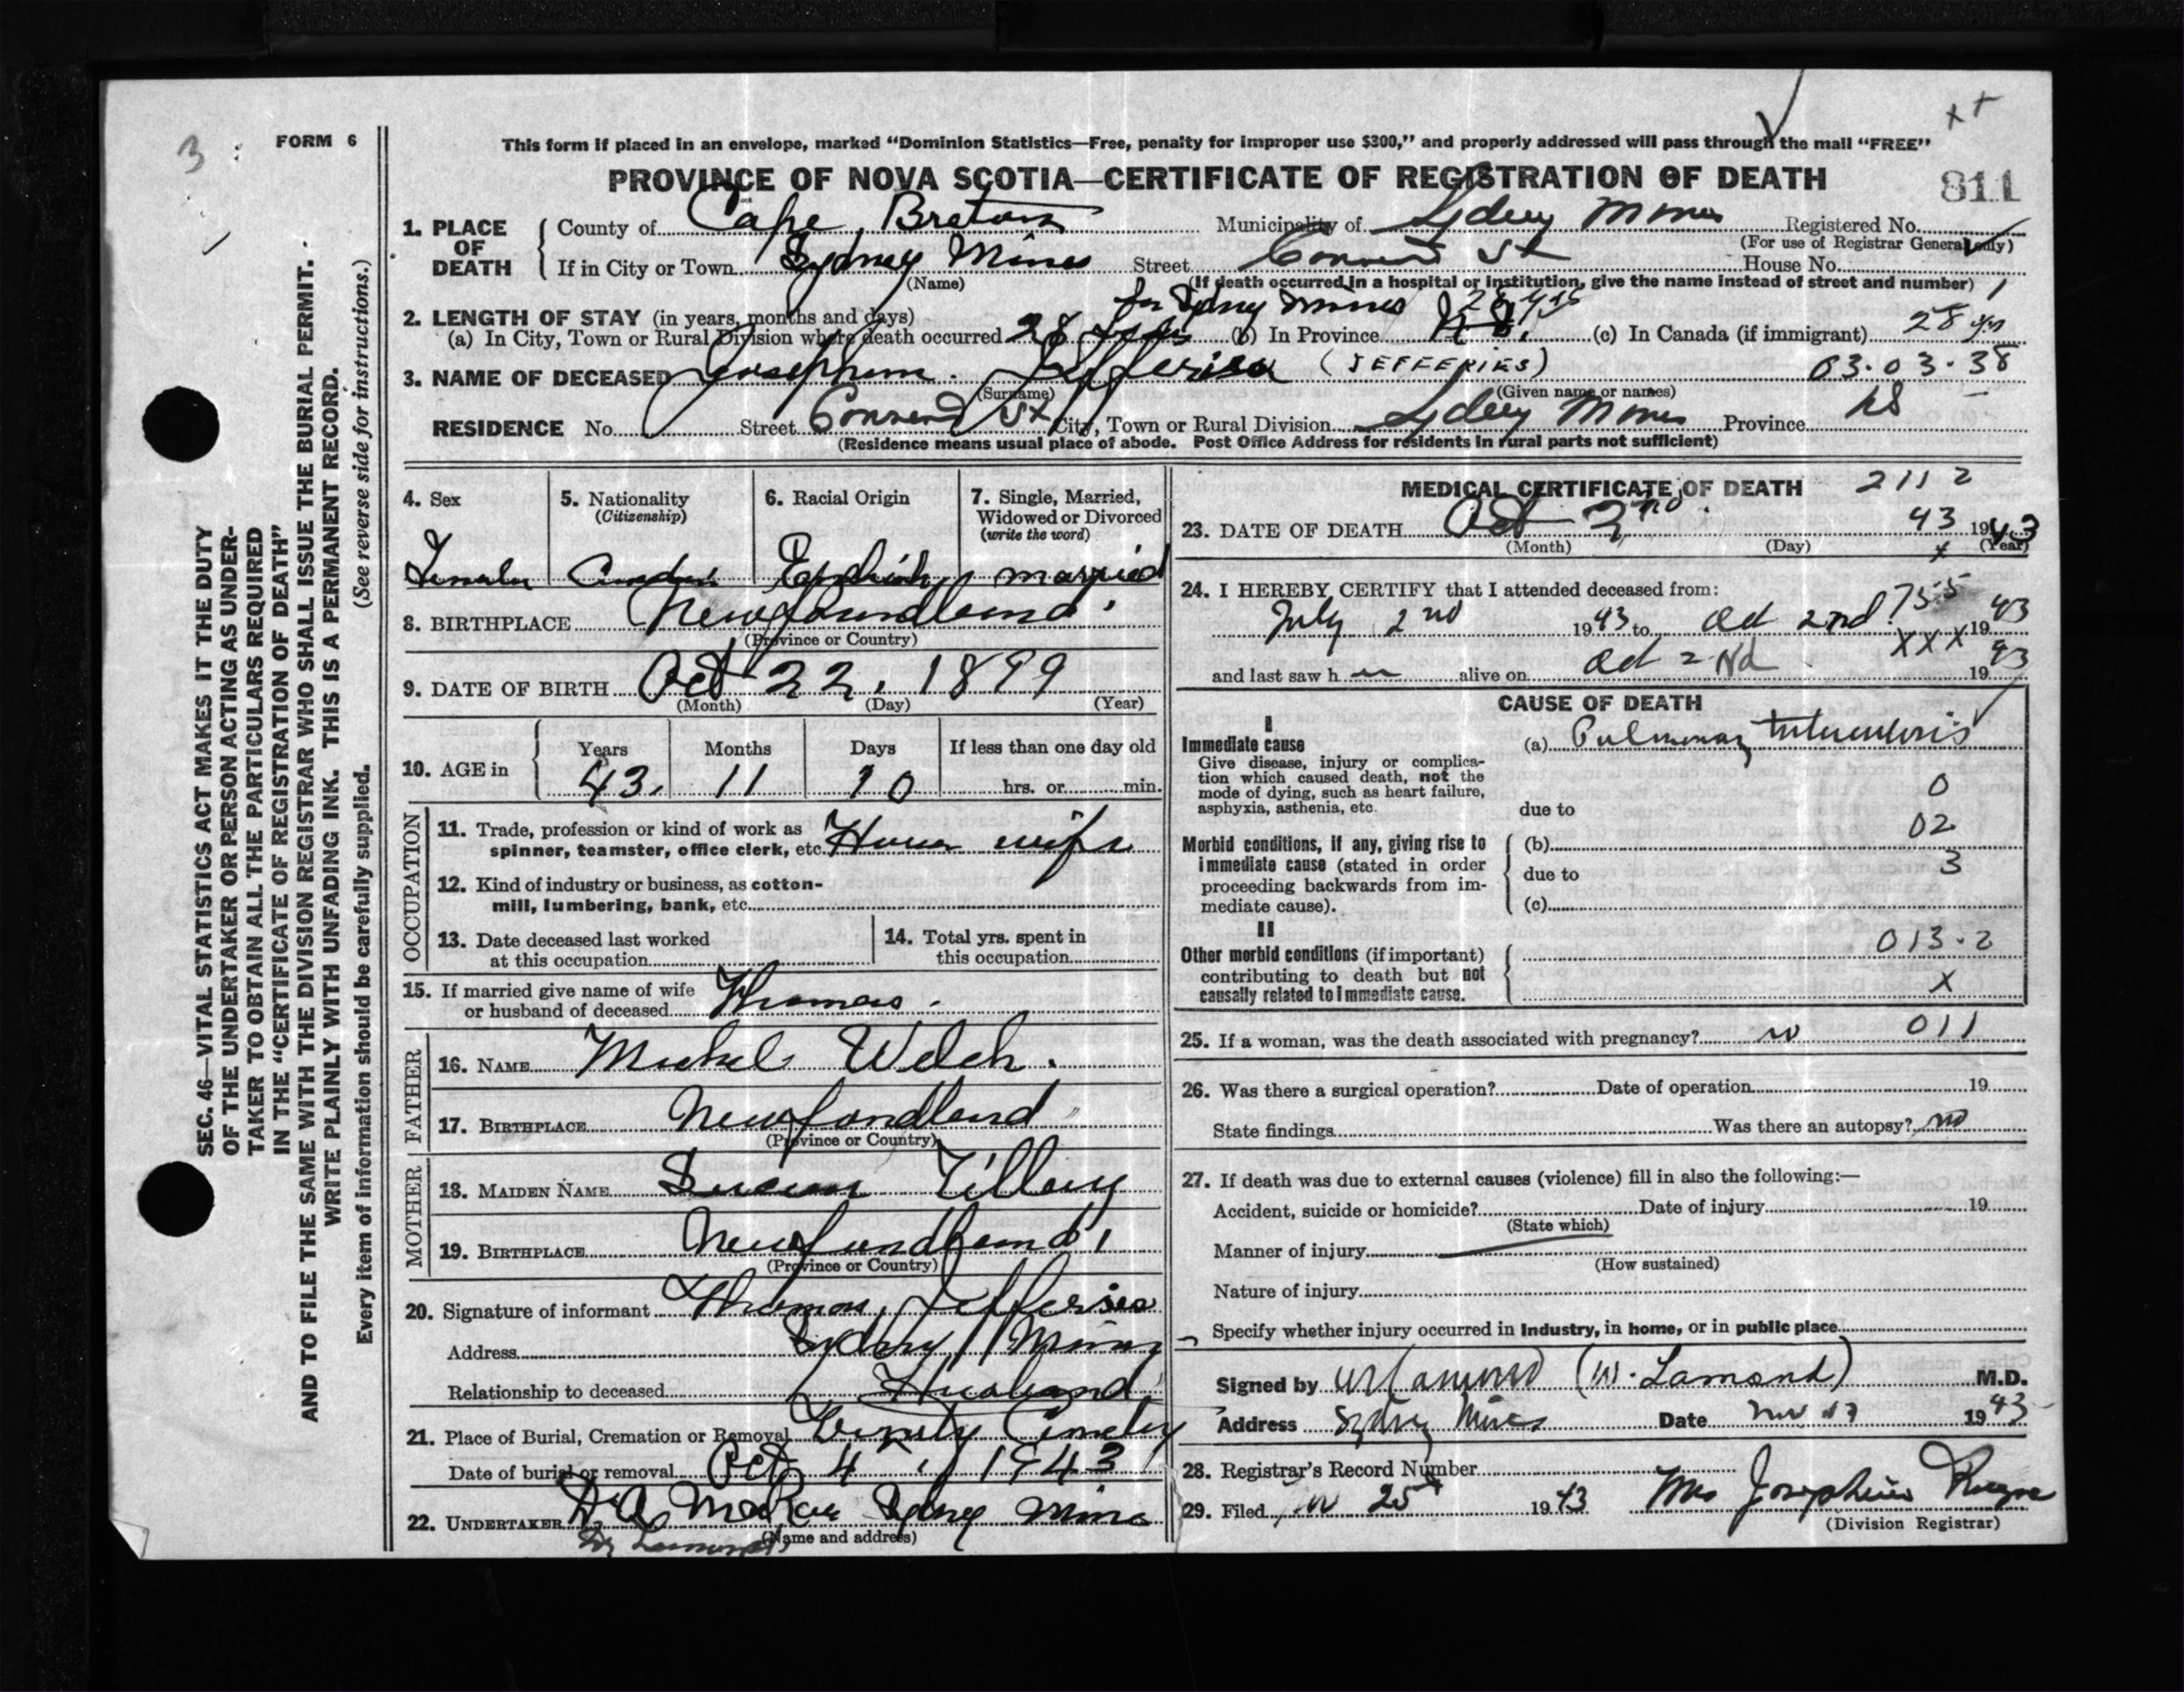 3
FORM 6
This form if placed in an envelope, marked “Dominion Statistics—Free, penalty for improper use $300,” and properly addressed will pass through the mail “FREE”
PROVINCE OF NOVA SCOTIA—CERTIFICATE OF REGISTRATION OF DEATH
811
1. PLACE OF DEATH
County of Cape Breton Municipality of Sydney Mines Registered No.
(For use of Registrar General only)
If in City or Town Sydney Mines Street St House No.
(Name) (If death occurred in a hospital or institution, give the name instead of street and number) 1
for Sydney Mines 28 yrs
2. LENGTH OF STAY (in years, months and days)
(a) In City, Town or Rural Division where death occurred 28 yrs (b) In Province N.S. (c) In Canada (if immigrant) 28 yrs
3. NAME OF DECEASED Josephine Jefferies (JEFFERIES) 03.03.38
(Surname) (Given name or names)
RESIDENCE No. Street St City, Town or Rural Division Sydney Mines Province NS
(Residence means usual place of abode. Post Office Address for residents in rural parts not sufficient)
4. Sex
Female
5. Nationality
(Citizenship)
Canadian
6. Racial Origin
English
7. Single, Married, Widowed or Divorced
(write the word)
married
8. BIRTHPLACE Newfoundland
(Province or Country)
9. DATE OF BIRTH Oct 22, 1899
(Month) (Day) (Year)
10. AGE in
Years Months Days If less than one day old
43 11 10 hrs. or min.
OCCUPATION
11. Trade, profession or kind of work as
spinner, teamster, office clerk, etc. House wife
12. Kind of industry or business, as cotton-
mill, lumbering, bank, etc.
13. Date deceased last worked
at this occupation
14. Total yrs. spent in
this occupation
15. If married give name of wife
or husband of deceased Thomas.
FATHER
16. NAME Michel Welch.
17. BIRTHPLACE Newfondland
(Province or Country)
MOTHER
18. MAIDEN NAME Susan Tilley
19. BIRTHPLACE Newfundland
(Province or Country)
20. Signature of informant Thomas Jefferies
Address Sydney Mines
Relationship to deceased Husband
21. Place of Burial, Cremation or Removal Trinity Cemetery
Date of burial or removal Oct 4, 1943
22. UNDERTAKER D A McRae Sydney Mines
(Name and address)
Dr Lamond
MEDICAL CERTIFICATE OF DEATH 2112
23. DATE OF DEATH Oct 2nd. 43 1943
(Month) (Day) (Year)
24. I HEREBY CERTIFY that I attended deceased from:
July 2nd 1943 to Oct 2nd 755 1943
and last saw h er alive on Oct 2nd xxx 1943
CAUSE OF DEATH
I
Immediate cause
Give disease, injury or complica-
tion which caused death, not the
mode of dying, such as heart failure,
asphyxia, asthenia, etc.
(a) Pulmonary tuberculosis
0
due to
Morbid conditions, if any, giving rise to
immediate cause (stated in order
proceeding backwards from im-
mediate cause).
(b) 02
due to 3
(c)
II
Other morbid conditions (if important)
contributing to death but not
causally related to immediate cause.
013.2
x
25. If a woman, was the death associated with pregnancy? no 011
26. Was there a surgical operation? Date of operation 19
State findings Was there an autopsy? no
27. If death was due to external causes (violence) fill in also the following:—
Accident, suicide or homicide? Date of injury 19
(State which)
Manner of injury
(How sustained)
Nature of injury
Specify whether injury occurred in industry, in home, or in public place
Signed by W Lamond (W. Lamond) M.D.
Address Sydney Mines Date Nov 17 1943
28. Registrar's Record Number
29. Filed Nov 25 1943 Mrs Josephine
(Division Registrar)
SEC. 46—VITAL STATISTICS ACT MAKES IT THE DUTY
OF THE UNDERTAKER OR PERSON ACTING AS UNDER-
TAKER TO OBTAIN ALL THE PARTICULARS REQUIRED
IN THE “CERTIFICATE OF REGISTRATION OF DEATH”
AND TO FILE THE SAME WITH THE DIVISION REGISTRAR WHO SHALL ISSUE THE BURIAL PERMIT.
WRITE PLAINLY WITH UNFADING INK. THIS IS A PERMANENT RECORD.
Every item of information should be carefully supplied. (See reverse side for instructions.)